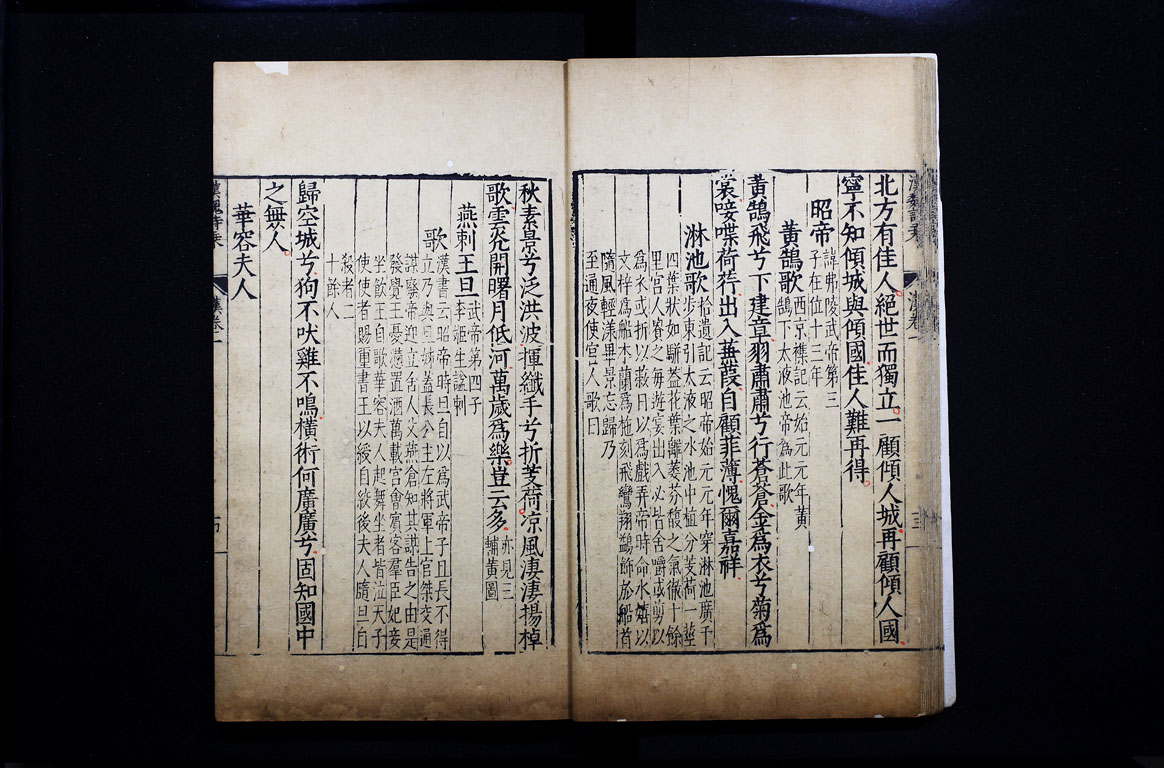 北方有佳人絕世而獨立一顧傾人城再顧傾人國
寧不知傾城與傾國佳人難再得
昭帝
諱弗陵武帝第三
子在位十三年
黃鵠歌
西京襍記云始元元年黃
鵠下太液池帝為此歌
黃鵠飛兮下建章羽肅肅兮行蒼蒼金為衣兮菊為
裳唼喋荷荇出入蒹葭自顧菲薄愧爾嘉祥
淋池歌
拾遺記云昭帝始元元年穿淋池廣千
步東引太液之水池中植分芰荷一莖
四葉狀如駢蓋花葉雜萎芬馥之氣徹十餘
里宮人貴之每遊宴出入必皆含嚼或剪以
為衣或折以蔽日以為戲弄帝時命水嬉以
文梓為船木蘭為柂刻飛鸞翔鷁飾於船首
隨風輕漾畢景忘歸乃
至通夜使宮人歌曰
秋素景兮泛洪波揮纖手兮折芰荷凉風淒淒揚棹
歌雲光開曙月低河萬歲為樂豈云多
亦見三
輔黃圖
燕刺王旦
武帝第四子
李姬生謚刺
歌
漢書云昭帝時旦自以為武帝子且長不得
立乃與旦姊蓋長公主左將軍上官桀交通
謀廢帝迎立舍人父燕倉知其謀告之由是
發覺王憂懣置酒萬載宮會賓客羣臣妃妾
坐飲王自歌華容夫人起舞坐者皆泣天子
使使者賜璽書王以綬自絞後夫人隨旦自
殺者二
十餘人
歸空城兮狗不吠雞不鳴橫術何廣廣兮固知國中
之無人
華容夫人